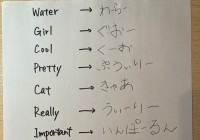 Water → わらー
Girl → ぐおー
Cool → くーお
Pretty → ぷうぃりー
Cat → きゃあ
Really → うぃりー
Important → いんぽーるん